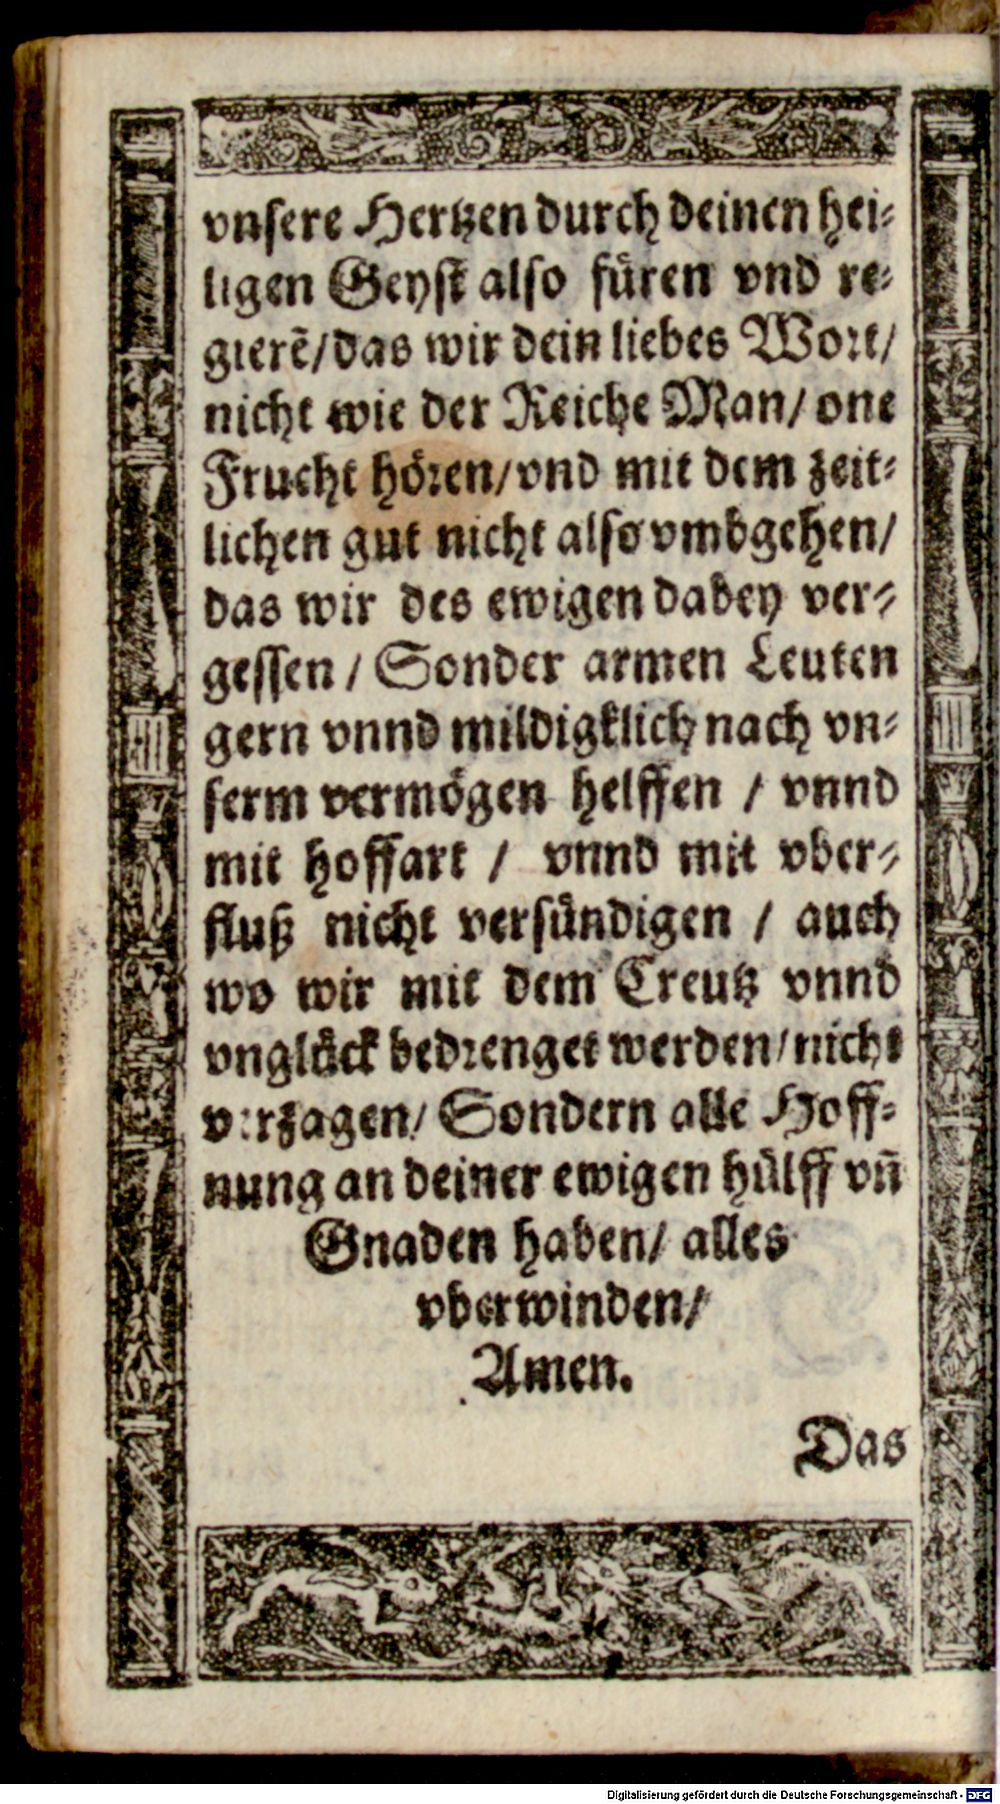 vnsere Hertzen durch deinen hei-
ligen Geyst also füren vnd re-
gierē/ das wir dein liebes Wort/
nicht wie der Reiche Man/ one
Frucht hören/ vnd mit dem zeit-
lichen gut nicht also vmbgehen/
das wir des ewigen dabey ver-
gessen / Sonder armen Leuten
gern vnnd mildigklich nach vn-
serm vermögen helffen / vnnd
mit hoffart / vnnd mit vber-
fluß nicht versündigen / auch
wo wir mit dem Creutz vnnd
vnglück bedrenget werden/ nicht
verzagen/ Sondern alle Hoff-
nung an deiner ewigen hülff vñ
Gnaden haben/ alles
vberwinden/
Amen.
Das
Digitalisierung gefördert durch die Deutsche Forschungsgemeinschaft - DFG